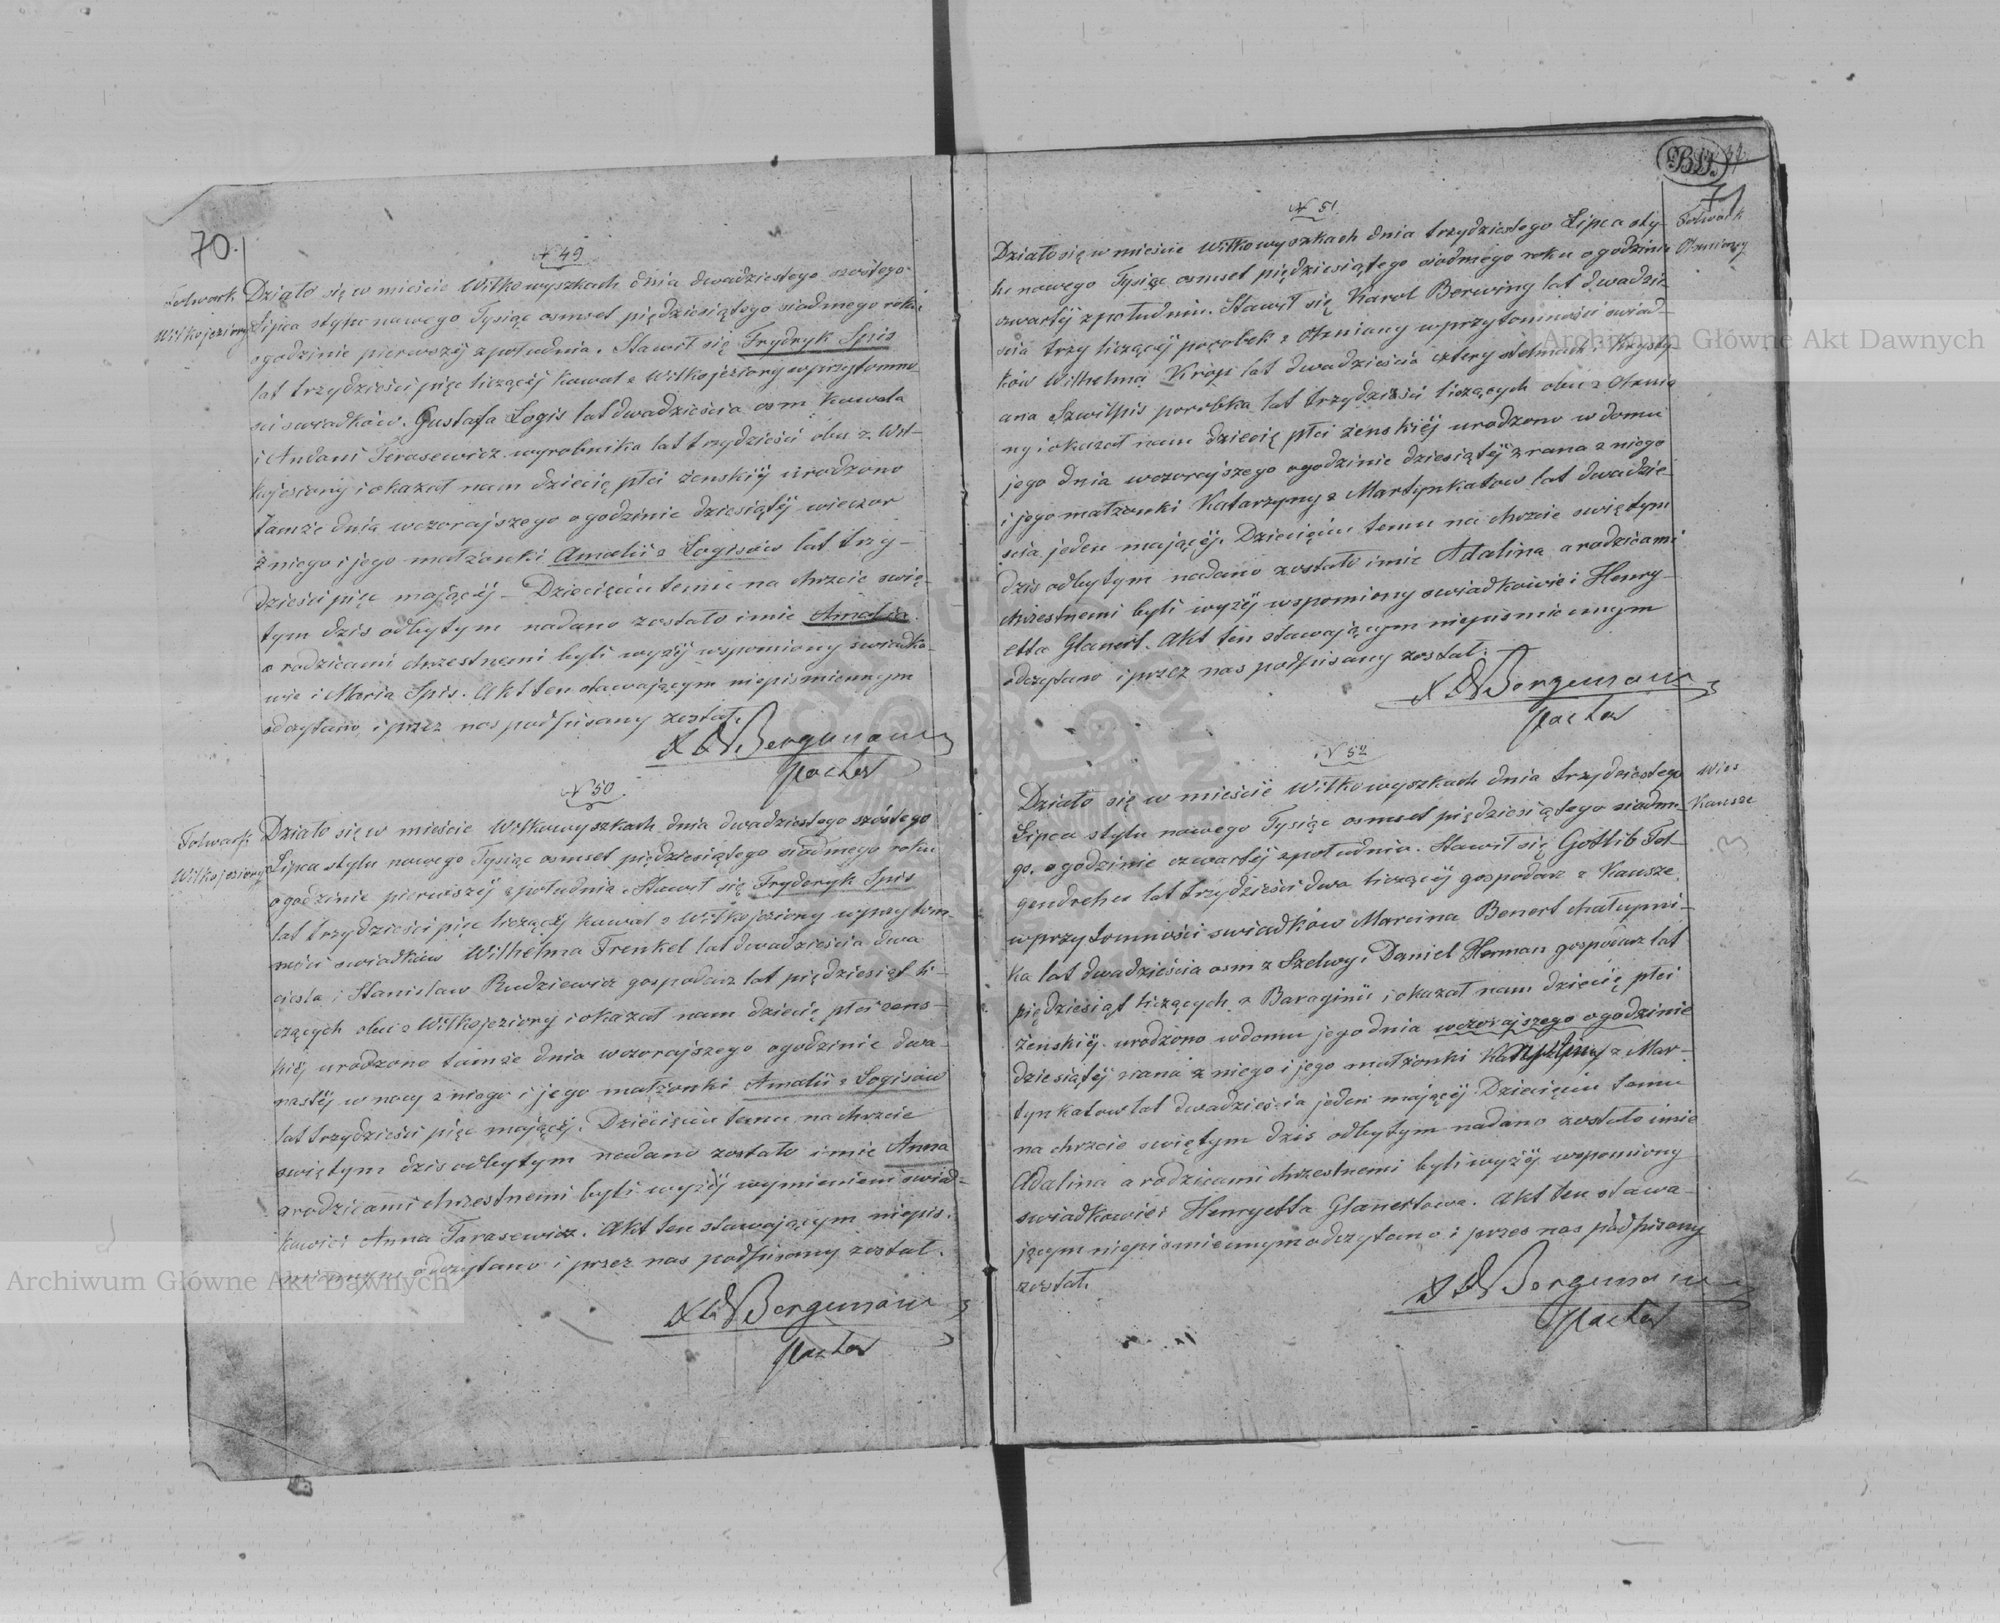 70.
N 49
Folwark
Wilkojeziory
Działo się w mieście Wiłkowyszkach dnia dwadziestego szóstego
Lipca stylu nowego Tysiąc osmset pięćdziesiątego siódmego roku
o godzinie pierwszéj z południa. Stawił się Frydryk Spis
lat trzydzieści pięc liczącéj kowal z Wilkojeziory w przytomno
ści swiadków. Gustafa Logis lat dwadzieścia osm kowala
i Andam Terasewicz wyrobnika lat trzydzieści obu z Wil-
kojeziory i okazał nam dziecię płci żenskiéj urodzono
tamże dnia wczorajszego o godzinie dziesiątéj wieczor
z niego i jego małżonki Amalii z Logisów lat trzy-
dzieści pięc mającéj – Dziecięciu temu na chrzcie swię-
tym dzis odbytym nadano zostało imie Amalia
a rodzicami chrzestnemi byli wyżéj wspomiony swiadko-
wie i Maria Spis. Akt ten stawającym niepismiennym
odczytano, i przez nas podpisany został.
Bergmann
Pastor
N 50
Folwark
Wilkojeziory
Działo się w mieście Wiłkowyszkach dnia dwadziestego szóstego
Lipca stylu nowego Tysiąc osmset pięćdziesiątego siadmego roku
o godzinie pierwszéj z południa. Stawił się Fryderyk Spis
lat trzydzieści pięc liczącéj kowal z Wilkojeziory w przytom-
ności swiadków Wilhelma Frenkel lat dwadzieścia dwa
ciesla i Stanislaw Rudziewicz gospodarz lat pięćdziesiąt li-
czących obu z Wilkojeziory i okazał nam dziecię płci żens-
kiéj urodzono tamże dnia wczorajszego o godzinie dwa-
nastéj w nocy z niego i jego małżonki Amalii z Logisów
lat trzydzieści pięc mającéj. Dziecięciu temu na chrzcie
swiętym dzis odbytym nadano zostało imie Anna
a rodzicami chrzestnemi byli wyżéj wymienieni swiad-
kowie i Anna Tarasewicz. Akt ten stawającym niepis-
miennym odczytano i przez nas podpisany został.
Bergmann
Pastor
71
N 51
Folwark
Ożniany
Działo się w mieście Wiłkowyszkach dnia trzydziestego Lipca sty-
lu nowego Tysiąc osmset pięćdziesiątego siadmego roku o godzinie
czwartéj z południu. Stawił się Karol Berwing lat dwadzie
ścia trzy liczącéj parobek z Ożniany w przytomności swiad-
ków Wilhelma Krop lat dwadzieścia cztery stelmach i Krysty-
ana Szwilpis parobka lat trzydzieści liczących obu z Ożnia
ny i okazał nam dziecię płci żenskiéj urodzono w domu
jego dnia wczorajszego o godzinie dziesiątéj z rana z niego
i jego małżonki Katarzyny z Martynkatow lat dwadzie-
ścia jeden mającéj. Dziecięciu temu na chrzcie swiętym
dzis odbytym nadano zostało imie Adalina a rodzicami
chrzestnemi byli wyżéj wspomiony swiadkowie i Henry-
etta Glanert. Akt ten stawającym niepismiennym
odczytano i przez nas podpisany został.
Bergmann
Pastor
N 52
Wies
Kausze
Działo się w mieście Wiłkowyszkach dnia trzydziestego
Lipca stylu nowego Tysiąc osmset pięćdziesiątego siadme-
go. o godzinie czwartéj z południa. Stawił się Gotlib Tol-
gendrehu lat trzydzieści dwa liczącéj gospodarz z Kausze
w przytomności swiadków Marcina Benert chałupni-
ka lat dwadzieścia osm z Szelwy i Daniel Herman gospodarz lat
pięćdziesiąt liczących z Baraginii i okazał nam dziecię płci
żenskiéj urodzono w domu jego dnia wczorajszego o godzinie
dziesiątéj z rana z niego i jego małżonki z Mar-
tynkatow lat dwadzieścia jeden mającéj. Dziecięciu temu
na chrzcie swiętym dzis odbytym nadano zostało imie
Adalina a rodzicami chrzestnemi byli wyżéj wspomiony
swiadkowie i Henryetta Glanertowa. Akt ten stawa-
jącym niepismiennym odczytano i przez nas podpisany
został.
Bergmann
Pastor
Archiwum Główne Akt Dawnych
Archiwum Główne Akt Dawnych